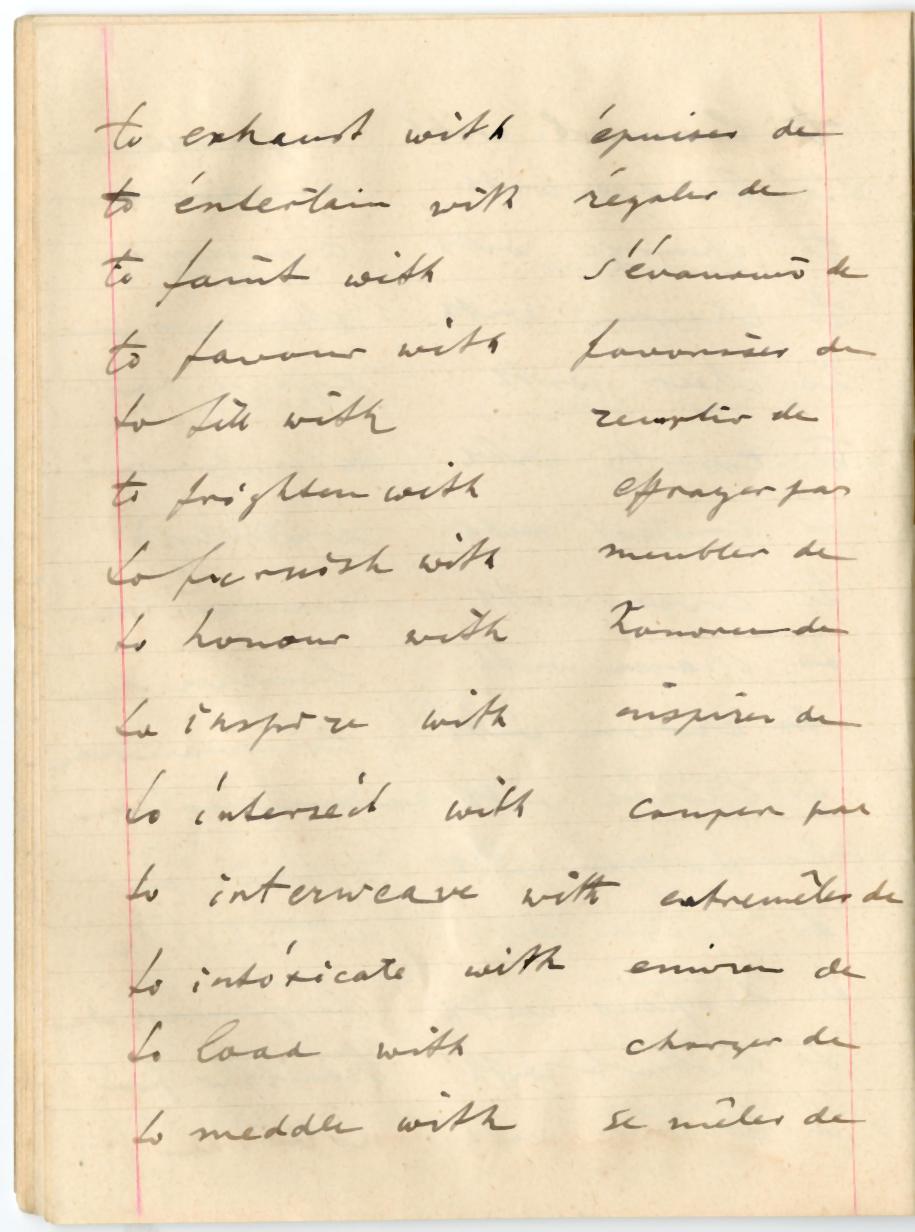 to exhaust with épuiser de
to entertain with régaler de
to faint with s'évanouir de
to favour with favoriser de
to fill with remplir de
to frighten with effrayer par
to furnish with meubler de
to honour with honorer de
to inspire with inspirer de
to intersect with couper par
to interweave with entremêler de
to intoxicate with enivrer de
to load with charger de
to meddle with se mêler de